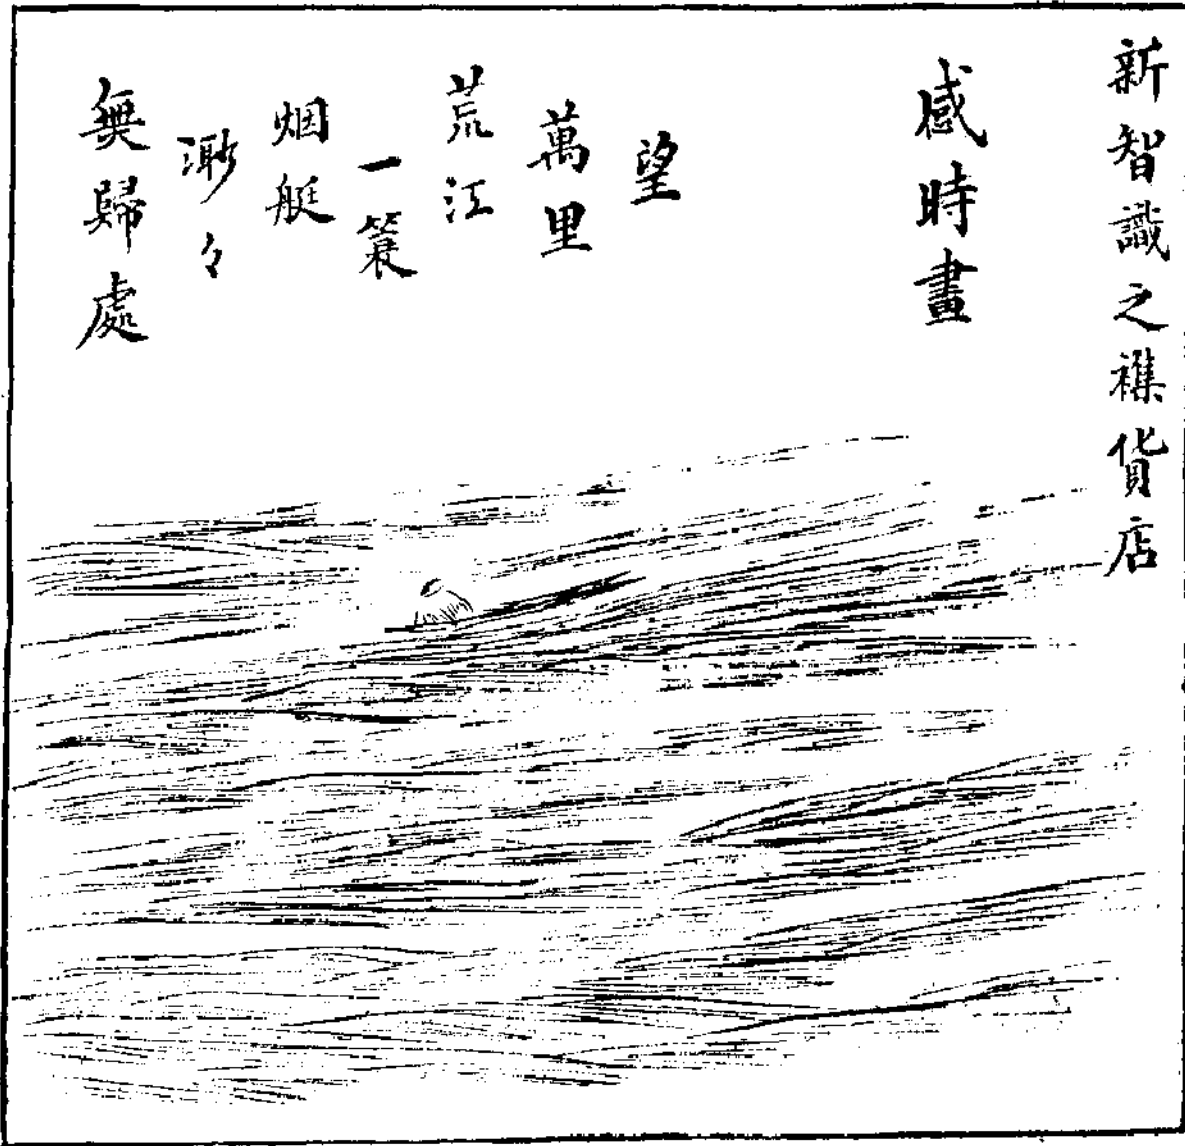 新智識之襍貨店
感時畫
望
萬里
荒江
一簑
烟艇
渺々
無歸處